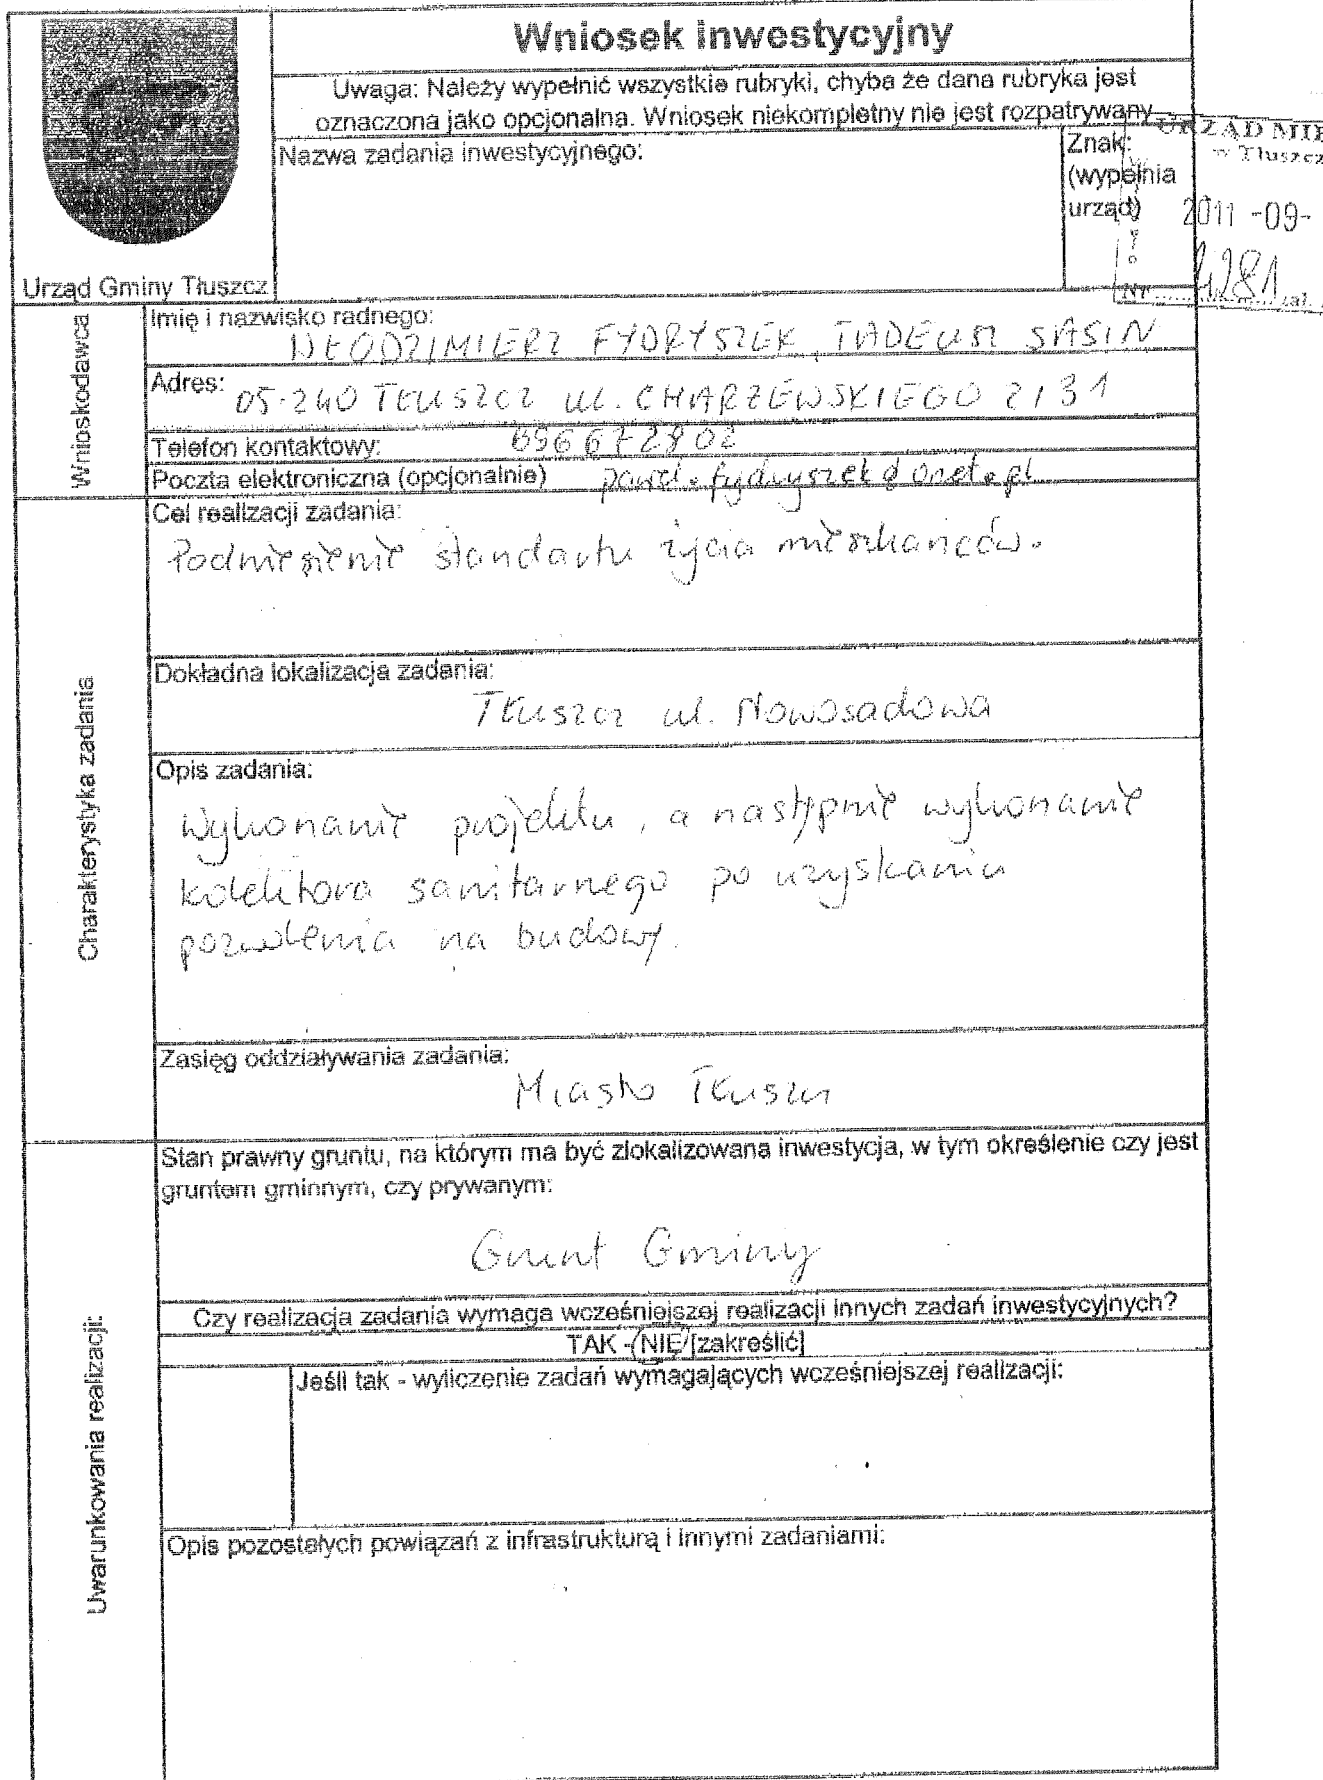 Wniosek inwestycyjny
Uwaga: Należy wypełnić wszystkie rubryki, chyba że dana rubryka jest
oznaczona jako opcjonalna. Wniosek niekompletny nie jest rozpatrywany
Nazwa zadania inwestycyjnego:
Znak:
(wypełnia
urząd)
URZĄD MIE
w Tłuszcz
2011 -09-
Nr 4281 zał.
Urząd Gminy Tłuszcz
Wnioskodawca
Imię i nazwisko radnego:
WŁODZIMIERZ FYDRYSZEK, TADEUSZ SASIN
Adres: 05-240 TŁUSZCZ UL. CHARZEWSKIEGO 2/31
Telefon kontaktowy: 696672802
Poczta elektroniczna (opcjonalnie) pawel.fydryszek@onet.pl
Charakterystyka zadania
Cel realizacji zadania:
Podniesienie standartu życia mieszkańców.
Dokładna lokalizacja zadania:
Tłuszcz ul. Nowosadowa
Opis zadania:
Wykonanie projektu, a następnie wykonanie
kolektora sanitarnego po uzyskaniu
pozwolenia na budowę.
Zasięg oddziaływania zadania:
Miasto Tłuszcz
Uwarunkowania realizacji:
Stan prawny gruntu, na którym ma być zlokalizowana inwestycja, w tym określenie czy jest
gruntem gminnym, czy prywanym:
Grunt Gminy
Czy realizacja zadania wymaga wcześniejszej realizacji innych zadań inwestycyjnych?
TAK - NIE [zakreślić]
Jeśli tak - wyliczenie zadań wymagających wcześniejszej realizacji:
Opis pozostałych powiązań z infrastrukturą i innymi zadaniami: